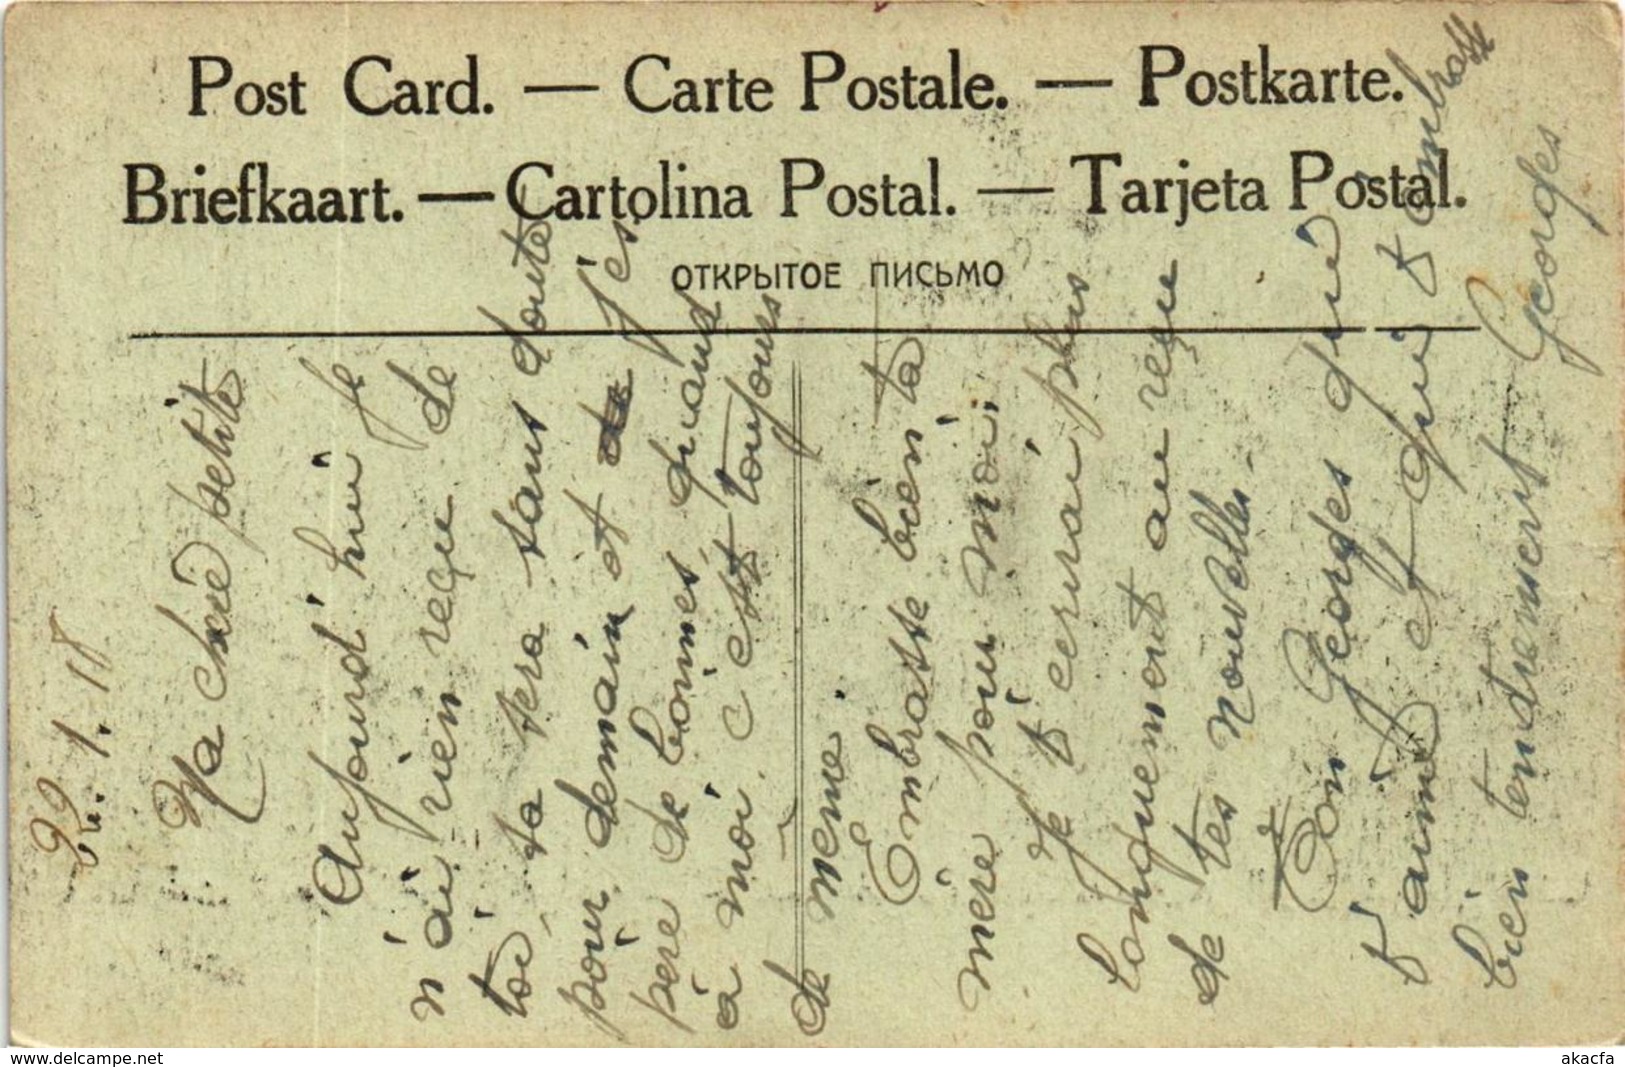 Post Card. — Carte Postale. — Postkarte.
Briefkaart. — Cartolina Postal. — Tarjeta Postal.
ОТКРЫТОЕ ПИСЬМО
1. 18
Ma chère petite
Aujourd'hui je
n'ai rien reçu de
toi, ta sera sans doute
pour demain et j'es
père de bonnes, quand
à moi, c'est toujours
de meme.
Embrasse bien ta
mère pour moi.
Je t'ecrirai plus
longuement au reçu
de tes nouvelles.
Ton Georges qui
t'aime et qui t'embrasse
bien tendrement
Georges
www.delcampe.net
akacfa